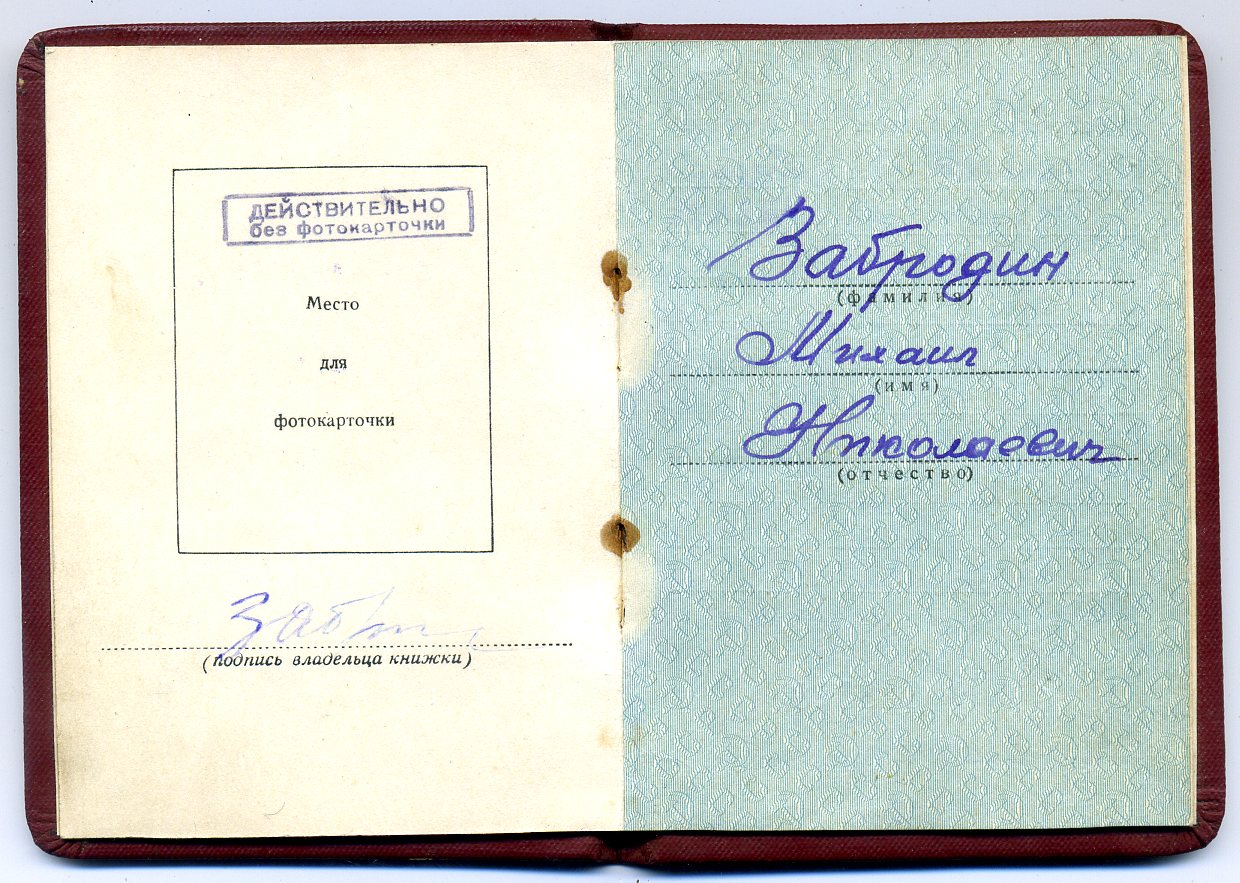 ДЕЙСТВИТЕЛЬНО
без фотокарточки
Место
для
фотокарточки
(подпись владельца книжки)
Забродин
(фамилия)
Михаил
(имя)
Николаевич
(отчество)